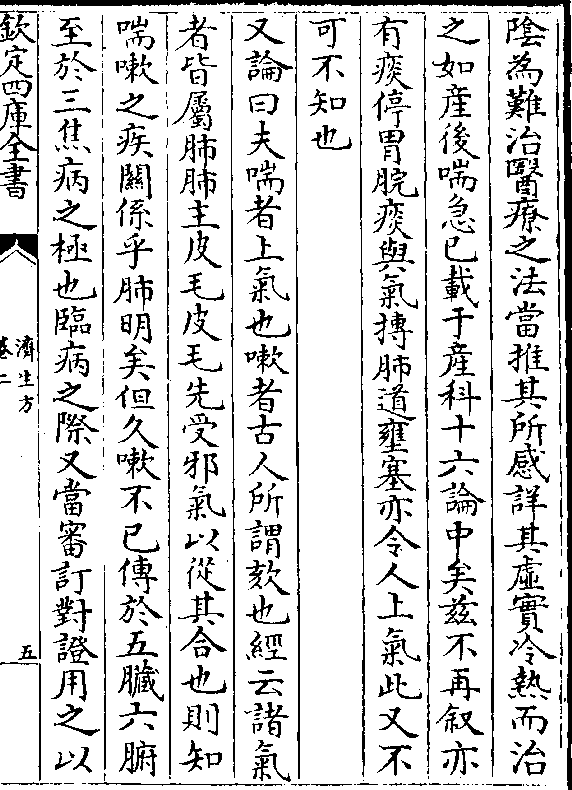 陰為難治醫療之法當推其所感詳其虛實冷熱而治
之如産後喘急已載于産科十六論中矣兹不再叙亦
有痰停胃脘痰與氣搏肺道壅塞亦令人上氣此又不
可不知也
又論曰夫喘者上氣也嗽者古人所謂欬也經云諸氣
者皆屬肺肺主皮毛皮毛先受邪氣以從其合也則知
喘嗽之疾關係乎肺明矣但久嗽不已傳於五臟六腑
至於三焦病之極也臨病之際又當審訂對證用之以
欽定四庫全書
濟生方
卷二
五